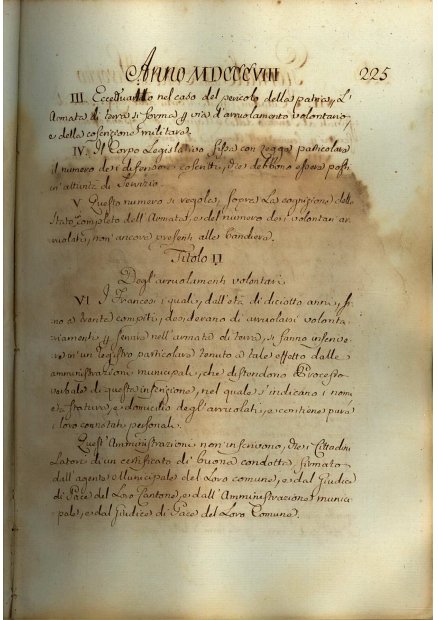 Anno MDCCCVIII 225
III. Eccettuato nel caso del pericolo della patria, L'
Armata di terra si forma p via d'arruolamento volontario,
e della coscrizione militare.
IV. Il Corpo Legislativo fissa con legge particolare
il numero dei difensori coscritti, che debbono essere posti
in attività di Servizio.
V Questo numero si regola, sopra La cognizione dello
Stato completo dell'Armata, e del numero dei volontari ar=
ruolati, non ancora presenti alle bandiere.
Titolo II
Degl'arruolamenti volontari
VI I Francesi i quali, dall'età di diciotto anni, fi=
no a trenta compiti, desiderano di arruolarsi volonta
riamente p servire nell'armata di terra, si fanno inscrive
re in un registro particolare tenuto a tale effetto dalle
amministrazioni municipali, che distendono Processo
verbale di questa inscrizione, nel quale s'indicano i nomi
e statura, e domicilio degl'arruolati, e contiene pure
i loro connotati personali.
Quest'Amministrazioni non inscrivono, che i Cittadini
Latori di un certificato di buona condotta, firmato
dall'agente Municipale del Loro comune, e dal Giudice
di Pace del Loro Cantone, e dall'Amministrazione munici
pale, e dal Giudice di Pace del Loro Comune.